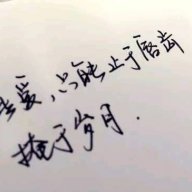 爱,只能止于唇齿
掩于岁月.